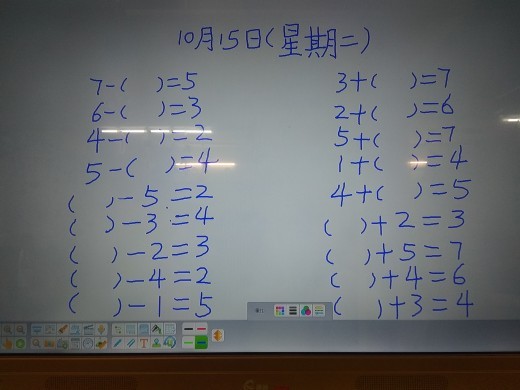 10月15日(星期二)
7-( )=5
6-( )=3
4-( )-2
5-( )=4
( )-5=2
( )-3=4
( )-2=3
( )-4=2
( )-1=5
3+( )=7
2+( )=6
5+( )=7
1+( )=4
4+( )=5
( )+2=3
( )+5=7
( )+4=6
( )+3=4